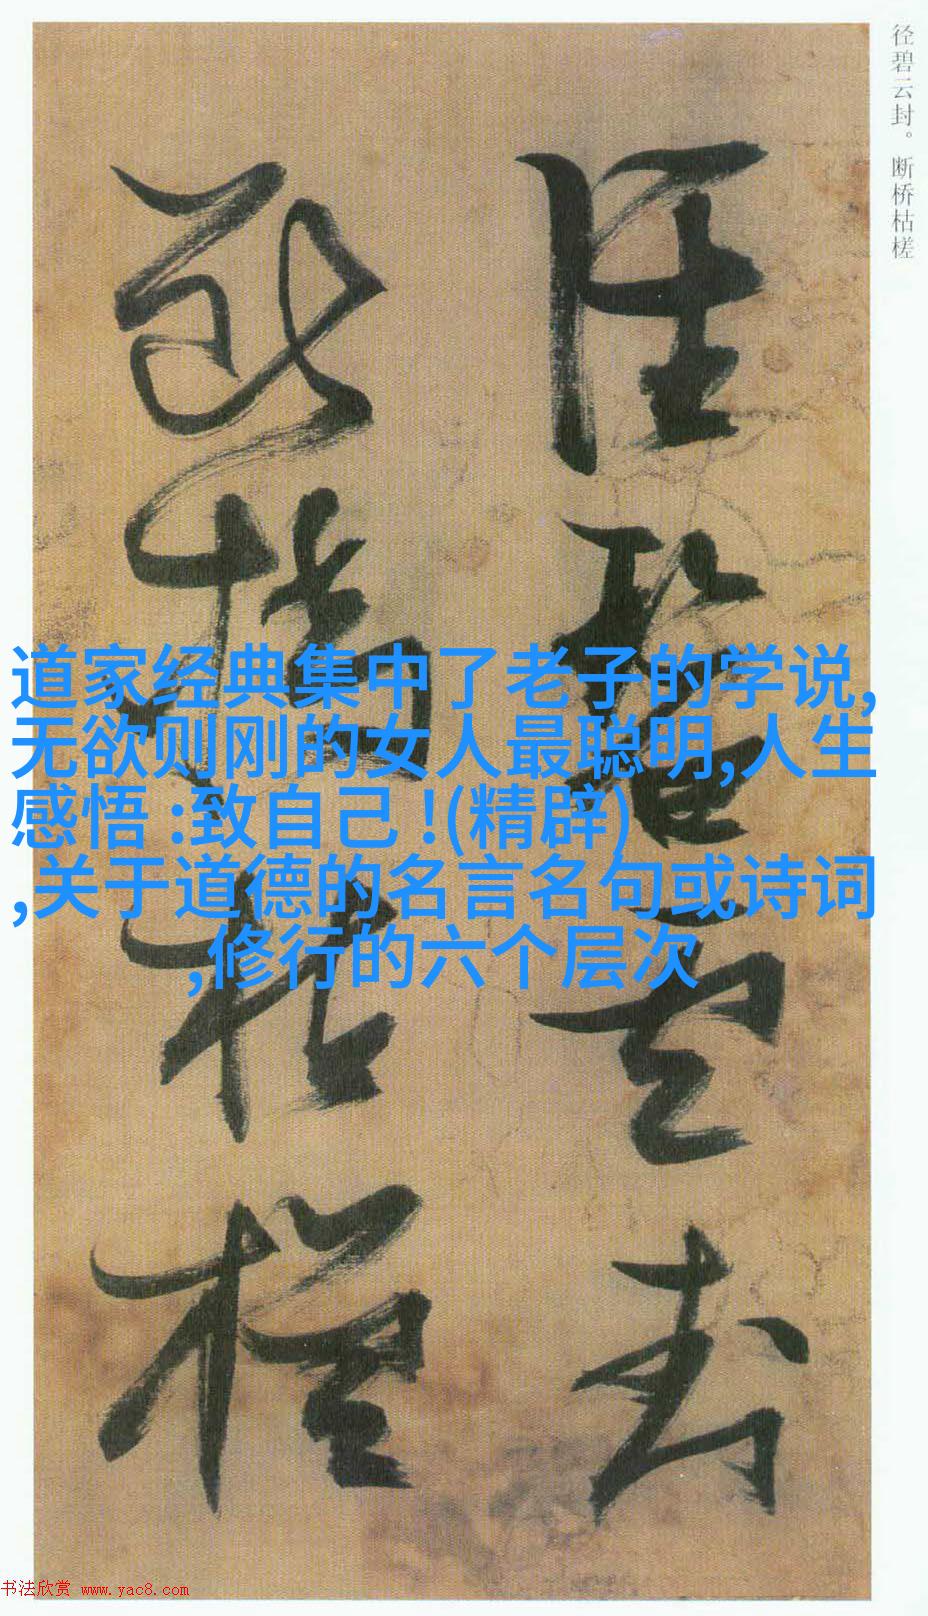 径碧云封。断桥枯槎
径碧云封
断桥枯槎
道家经典集中了老子的学说,
无欲则刚的女人最聪明,人生
感悟 :致自己 !(精辟)
,关于道德的名言名句或诗词
,修行的六个层次
书法欣赏 www.yac8.com